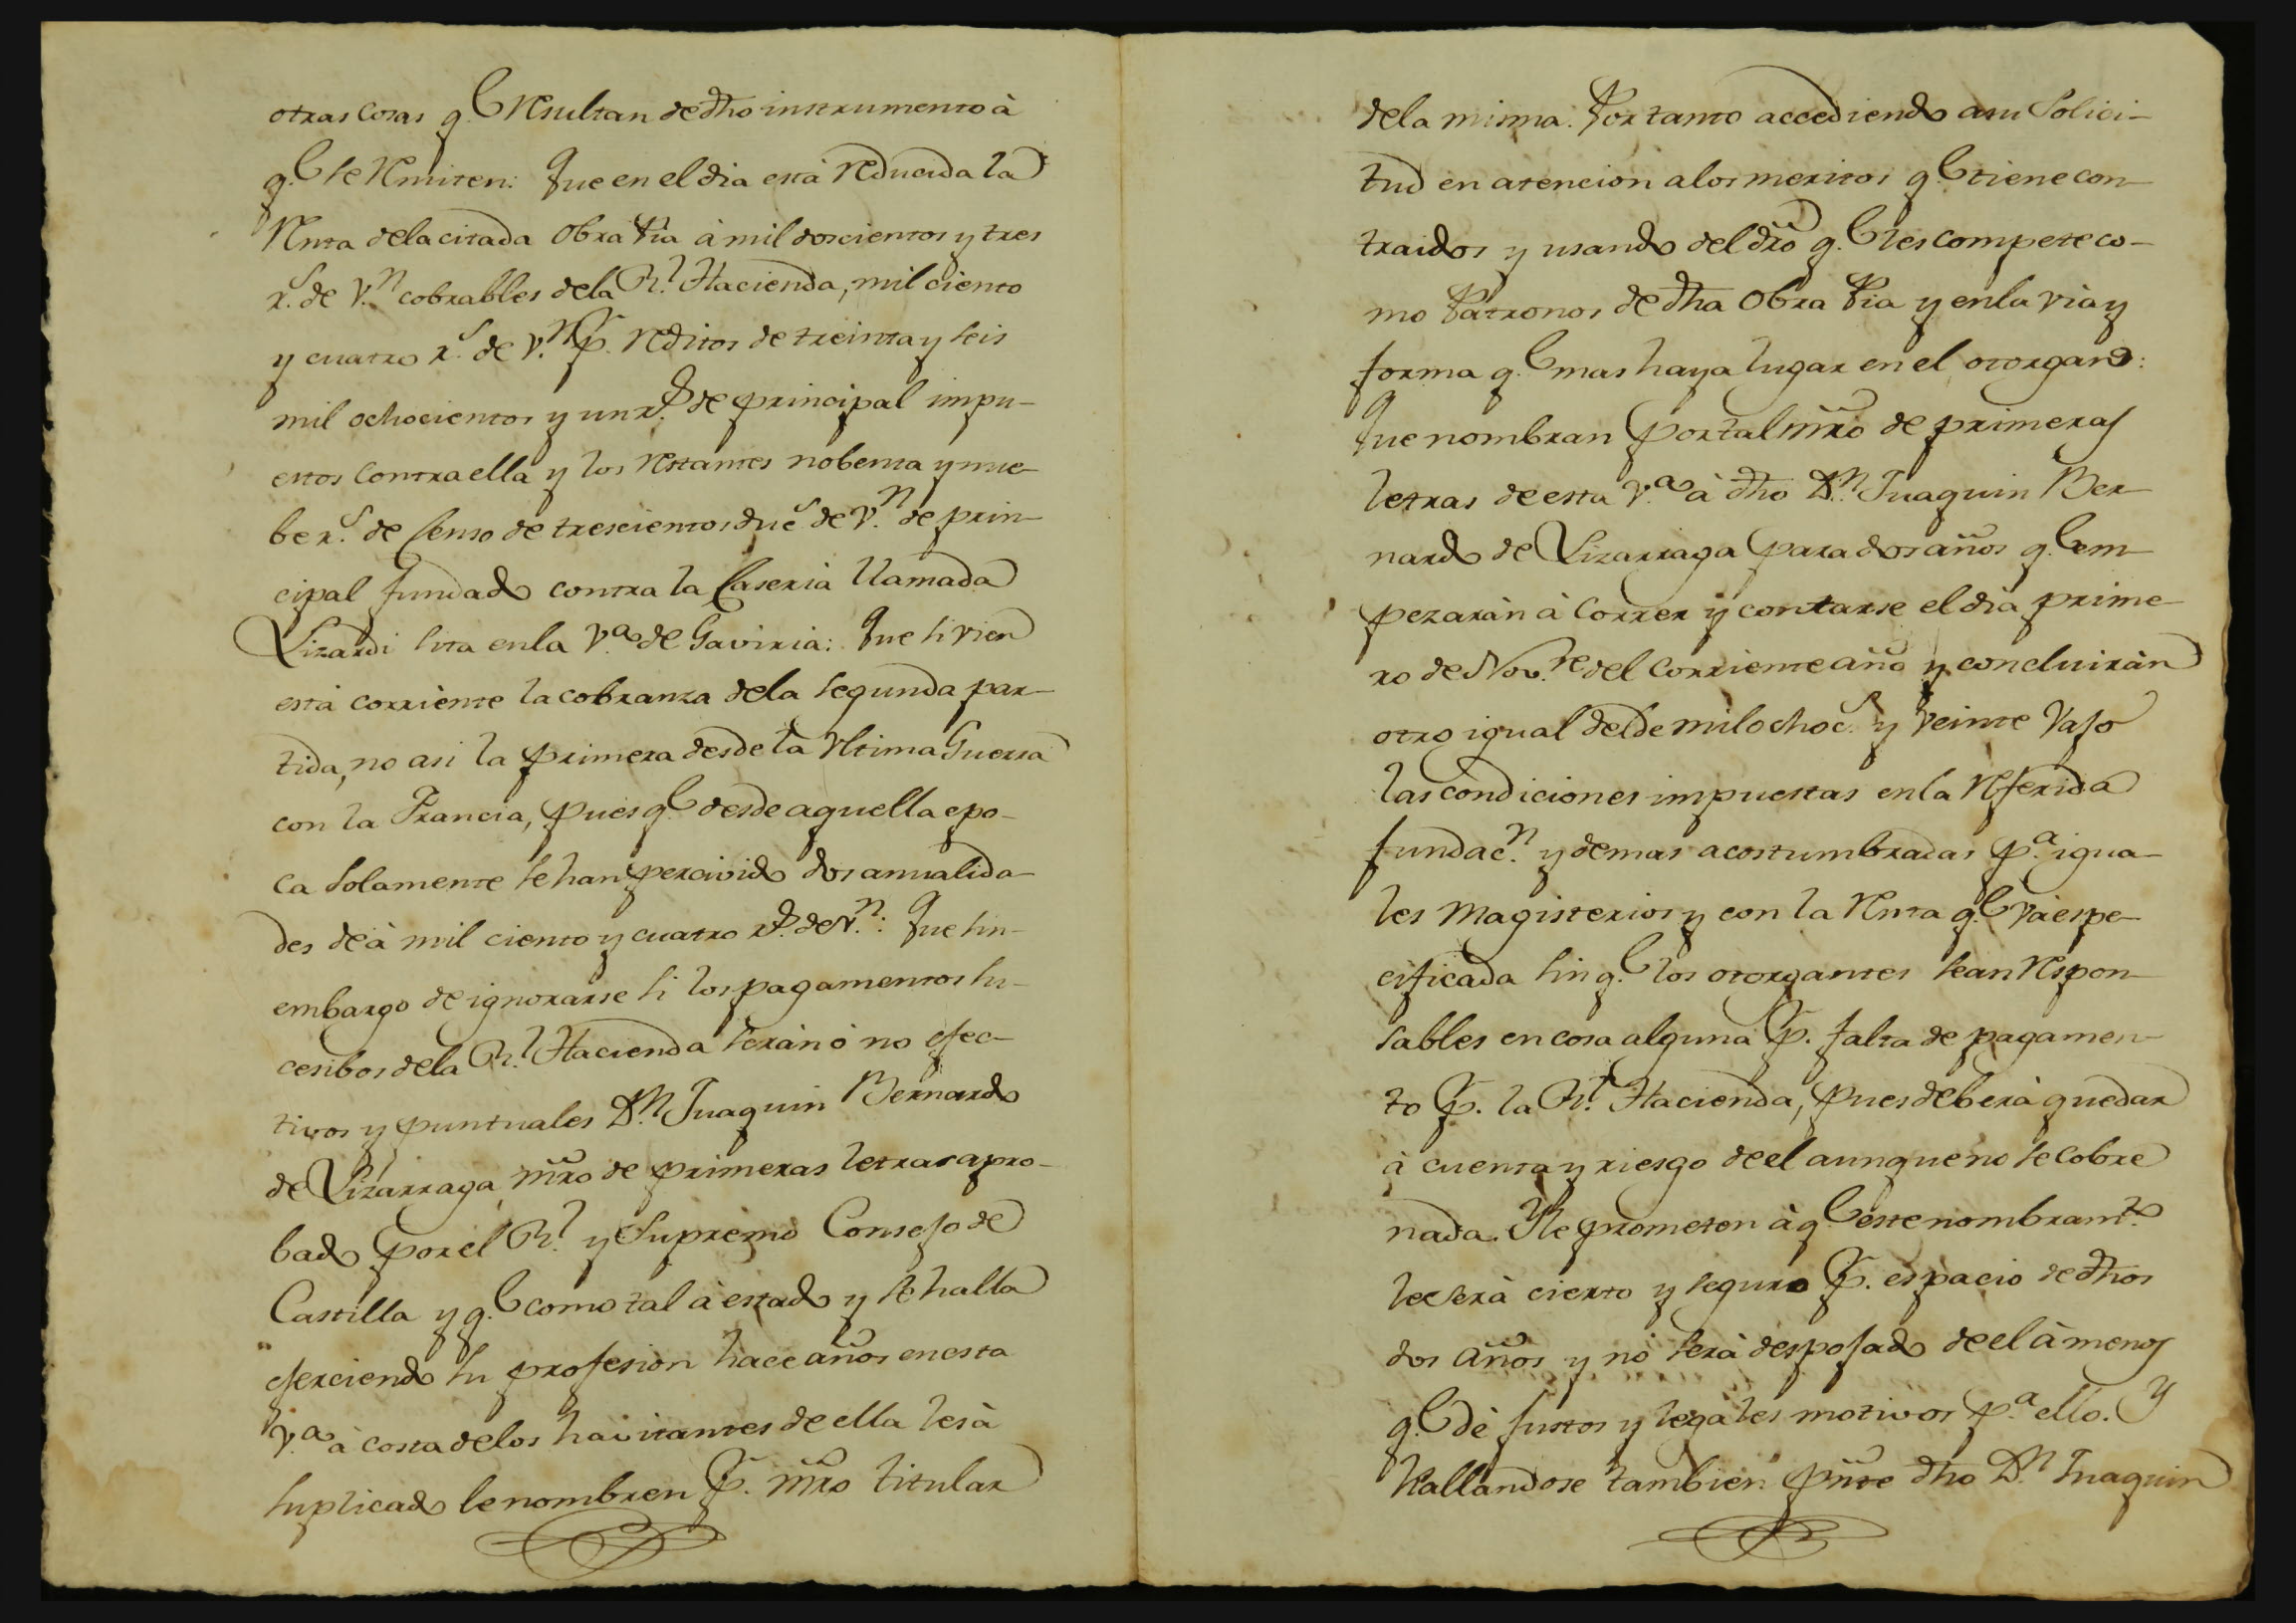 otras cosas q.e resultan de dho instrumento à
q.e se remiten: Que en el dia està reducida la
renta dela citada Obra Pia à mil doscientos y tres
r.s de v.n cobrables dela R.l Hacienda, mil ciento
y cuatro r.s de v.n p.r reditos de treinta y seis
mil ochocientos y un r.s de principal impu-
estos contra ella y los restantes nobenta y nue-
be r.s de Censo de trescientos duc.s de v.n de prin-
cipal fundado contra la Caseria llamada
Lizardi sita en la V.a de Gaviria: Que si vien
està corriente la cobranza dela segunda par-
tida, no asi la primera desde la Ultima Guerra
con la Francia, pues q.e desde aquella epo-
ca solamente se han percivido dos anualida-
des de à mil ciento y cuatro r.s de v.n: Que sin
embargo de ignorarse si los pagamentos su-
cesibos dela R.l Hacienda seràn ò no efec-
tivos y puntuales D.n Juaquin Bernardo
de Lizarraga mro de primeras letras apro-
bado por el R.l y Supremo Consejo de
Castilla y q.e como tal à estado y se halla
ejerciendo su profesion hace años en esta
V.a à costa delos havitantes de ella les à
suplicado le nombren p.r mro titular
dela misma. Por tanto accediendo a su Solici-
tud en atencion a los meritos q.e tiene con-
traidos y usando del dro q.e les compete co-
mo Patronos de dha Obra Pia y en la via y
forma q.e mas haya lugar en el otorgan:
Que nombran por tal mro de primeras
letras de esta V.a à dho D.n Juaquin Ber-
nardo de Lizarraga para dos años q.e em-
pezaràn à correr y contarse el dia prime-
ro de Nov.re del corriente año y concluiràn
otro igual del de mil ochoc.s y veinte vajo
las condiciones impuestas en la referida
fundac.n y demas acostumbradas p.a igua-
les Magisterios y con la renta q.e và espe-
cificada sin q.e los otorgantes sean respon-
sables en cosa alguna p.r falta de pagamen-
to p.r la R.l Hacienda, pues deberà quedar
à cuenta y riesgo de el aunque no se cobre
nada. Y le prometen à q.e este nombram.to
le serà cierto y seguro p.r espacio de dhos
dos años y no serà despojado de el à menos
q.e dè justos y legales motivos p.a ello. Y
hallandose tambien pnte dho D.n Juaquin